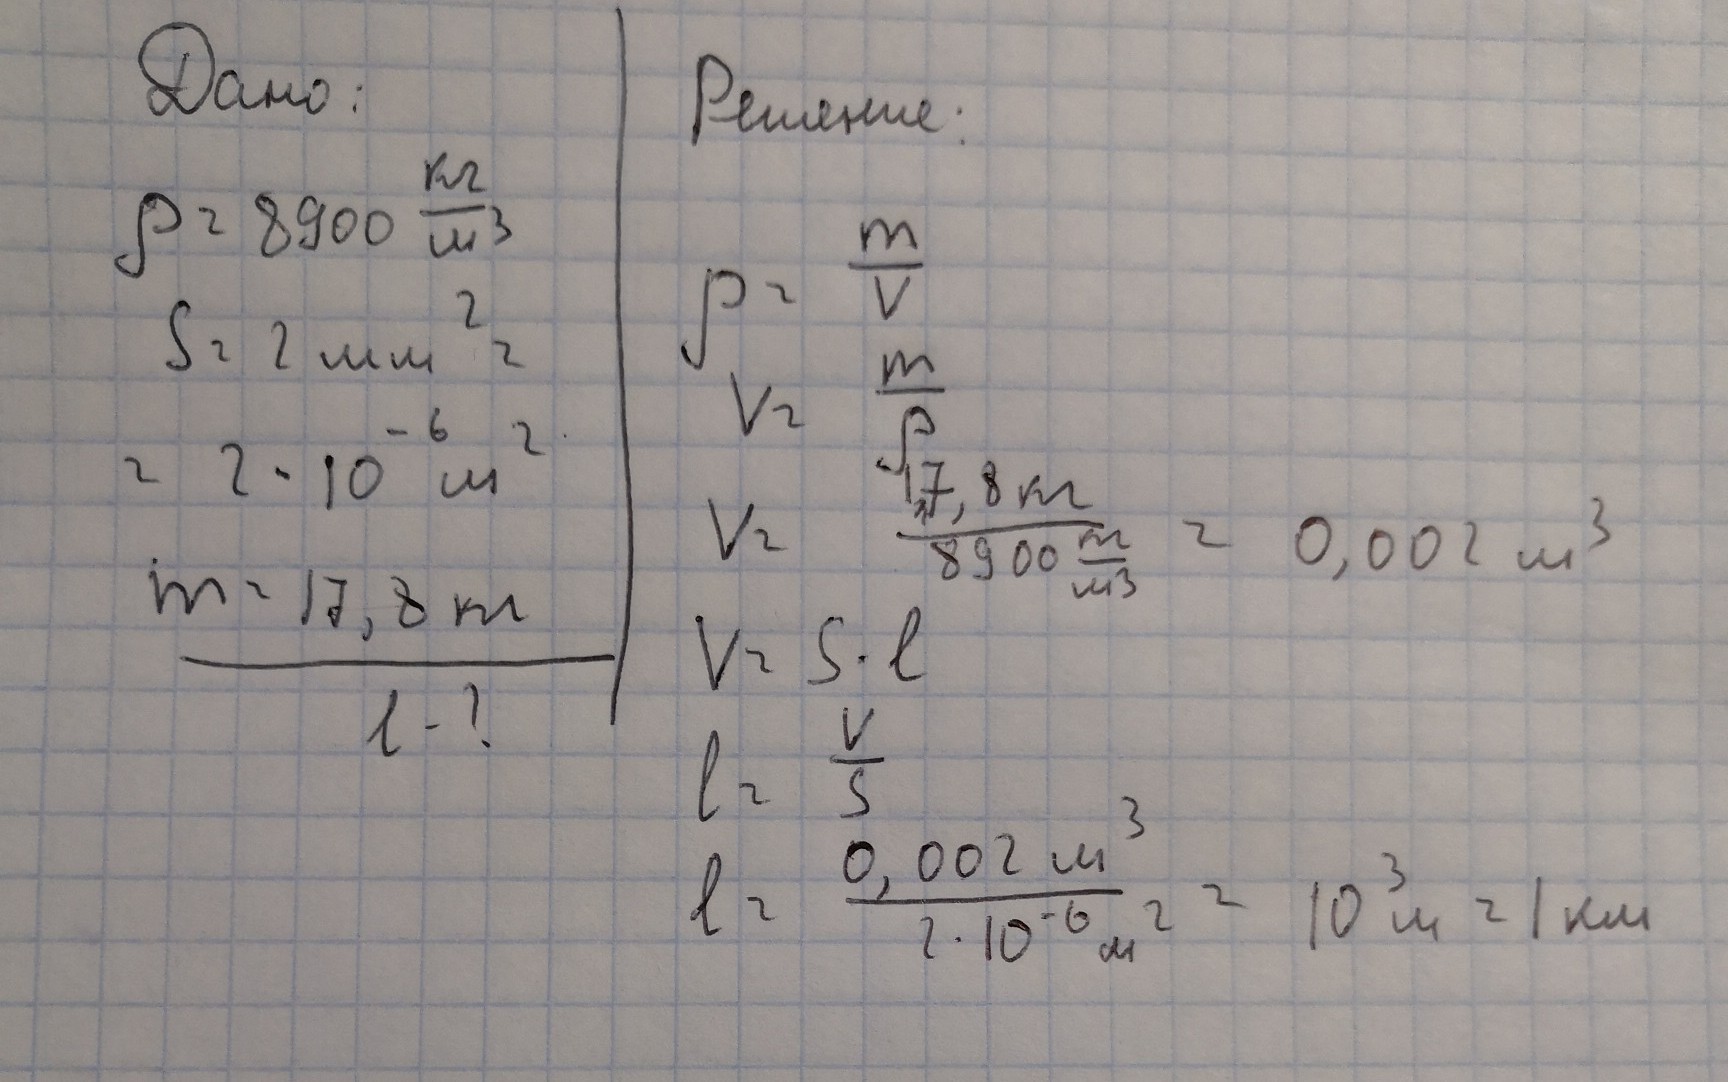 Дано:
ρ = 8900 кг/м³
S = 2 мм² =
= 2 · 10⁻⁶ м²
m = 17,8 кг
l - ?
Решение:
ρ = m/V
V = m/ρ
V = 17,8 кг / 8900 кг/м³ = 0,002 м³
V = S · l
l = V/S
l = 0,002 м³ / 2 · 10⁻⁶ м² = 10³ м = 1 км